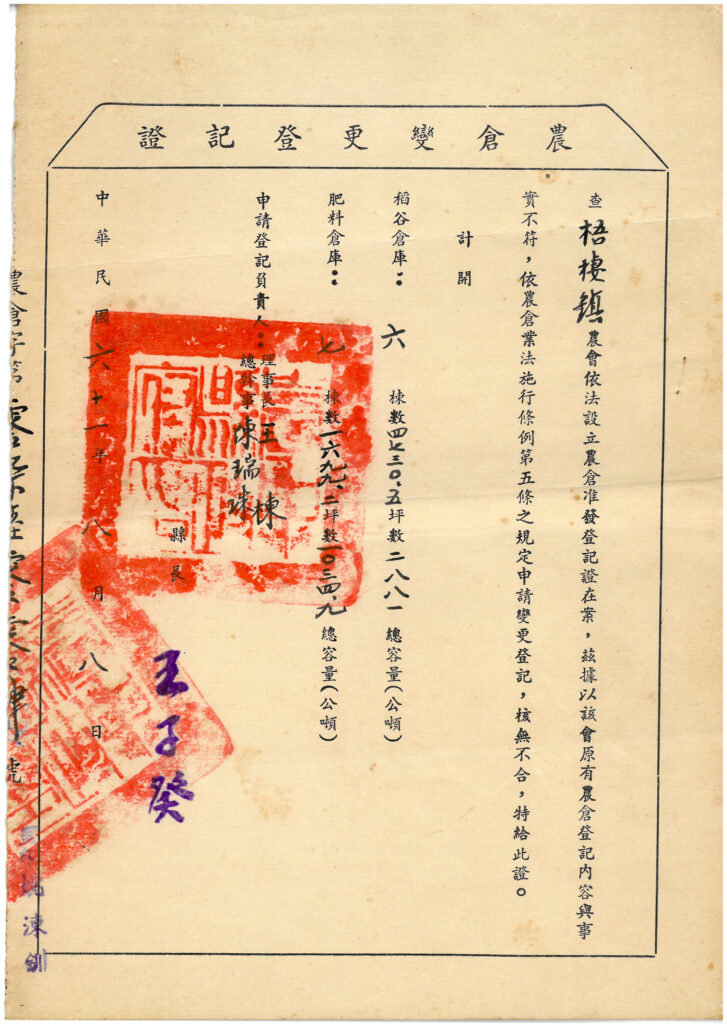 農倉變更登記證
查梧棲鎮農會依法設立農倉准發登記證在案,茲據以該會原有農倉登記內容與事
實不符,依農倉業法施行條例第五條之規定申請變更登記,核無不合,特給此證。
計開
稻谷倉庫:六棟數四七三○.五坪數二八八一總容量(公噸)
肥料倉庫:七棟數一六九九.二坪數一○三四.九總容量(公噸)
申請登記負責人:理事長王棟
總幹事陳瑞珠
縣長王子癸
中華民國六十一年八月八日
農倉字第
號